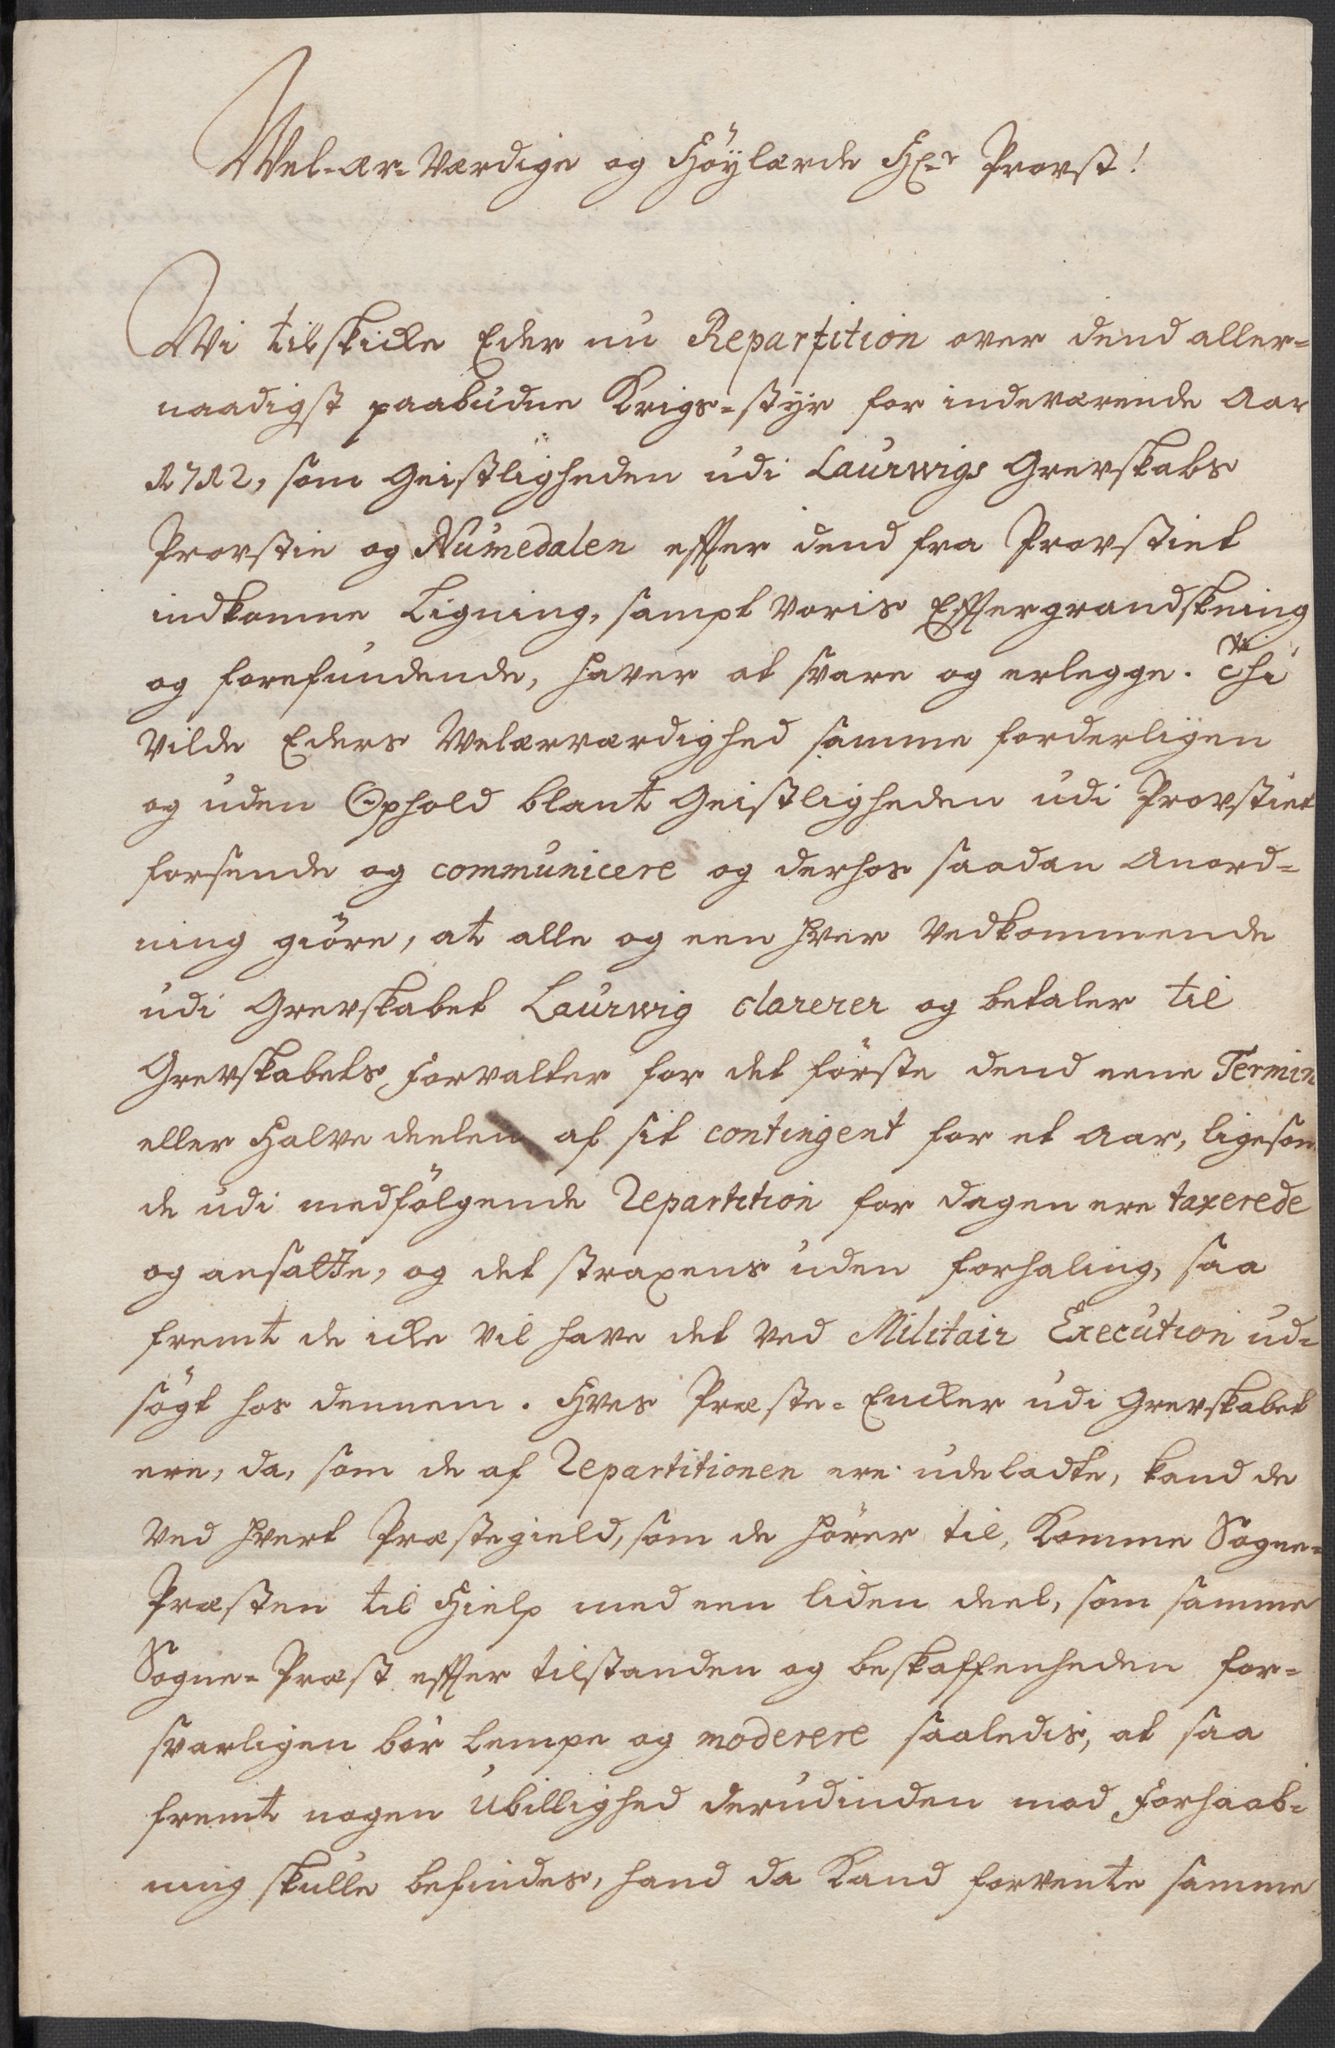 Wel-ær-værdige og Höylærde Hr Provst!
Wi tilskicke Eder nu Repartition over dend aller-
naadigst paabudne Krigs-styr for indeværende Aar
1712, som Geistligheden udi Laurwigs Grevskabs
Provstie og Numedalen effter dend fra Provstiet
indkomne Ligning, sampt voris Efftergrandskning
og forefundende, haver at svare og erlegge. Thi
vilde Eders Welærværdighed samme forderligen
og uden Ophold blant Geistligheden udi Provstiet
forsende og communicere og derhos saadan Anord-
ning giöre, at alle og een hver vedkommende
udi Grevskabet Laurwig clarerer og betaler til
Grevskabets Forvalter for det förste dend eene Termin
eller Halve deelen af sit contingent for et Aar, ligesom
de udi medfölgende Repartition for dagen ere taxerede
og ansatte, og det straxens uden forhaling, saa
fremt de icke vil have det ved Militair Execution udi
sögt hos dennem. Hves Præste-Encker udi Grevskabet
ere, da, som de af Repartitionen ere udeladte, kand de
ved hvert Præstegield, som de hörer til, komme Sogne-
Præsten til Hielp med een liden deel, som samme
Sogne-Præst effter tilstanden og beskaffenheden for-
svarligen bör lempe og moderere saaledis, at saa
fremt nogen Ubillighed derudinden mod Forhaab-
ning skulle befindes, hand da kand forvente samme